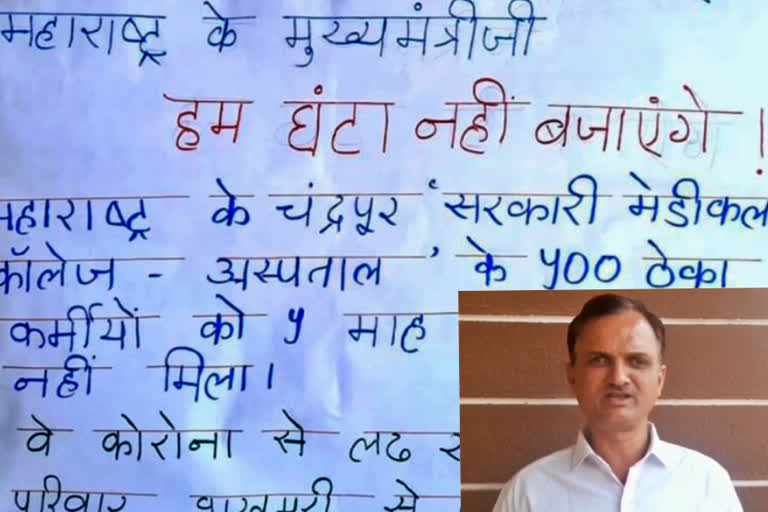 महाराष्ट्र के मुख्यमंत्रीजी
हम घंटा नहीं बजाएंगे !
महाराष्ट्र के चंद्रपूर ‘सरकारी मेडीकल
कॉलेज - अस्पताल’ के ५00 ठेका
कर्मीयों को ५ माह
नहीं मिला।
वे कोरोना से लढ
परिवार भुखमरी से